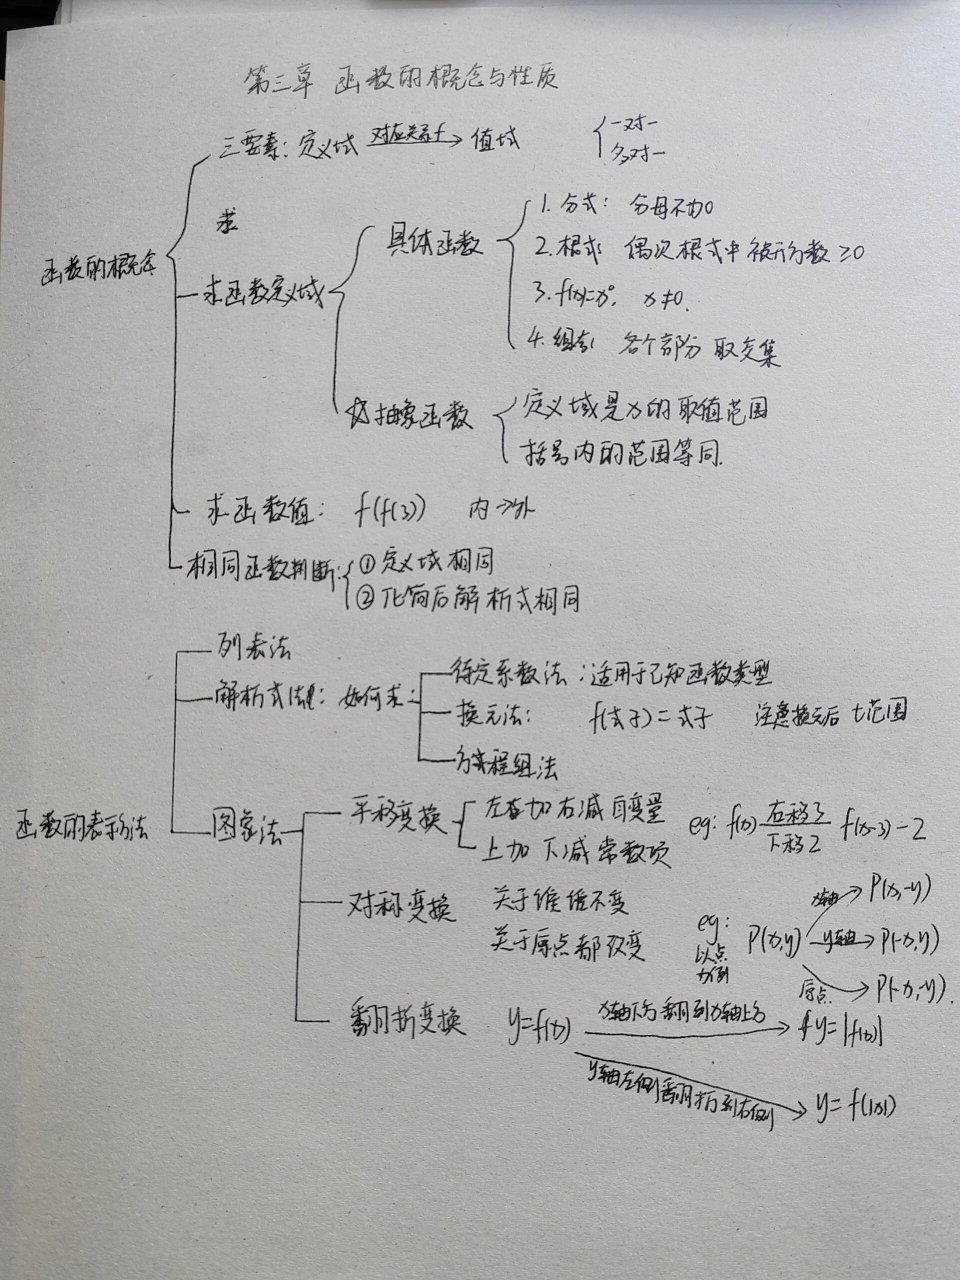 第三章 函数的概念与性质
三要素：定义域 对应关系f→ 值域 一对一
多对一
求
具体函数 1.分式： 分母不为0
2.根式 偶次根式中被开方数≥0
函数的概念
求函数定义域 3.f(x)=x⁰. x≠0.
4.组合 各个部分 取交集
抽象函数 定义域是x的取值范围
括号内的范围等同.
求函数值： f(f(3)) 内→外
相同函数判断： ①定义域相同
②化简后解析式相同
列表法
解析式法 如何求： 待定系数法：适用于已知函数类型
换元法： f(式子)=式子 注意换元后 t范围
方程组法
函数的表示方法
图象法 平移变换 左加右减 自变量 eg: f(x) 右移3 下移2 f(x-3)-2
上加 下减 常数项
对称变换 关于谁谁不变 eg: 以点为例 P(x,y) x轴→ P(x,-y)
关于原点都改变 y轴→ P(-x,y)
原点 P(-x,-y).
翻折变换 y=f(x) x轴下方翻到x轴上方 y=|f(x)|
y轴左侧翻折到右侧 y=f(|x|)